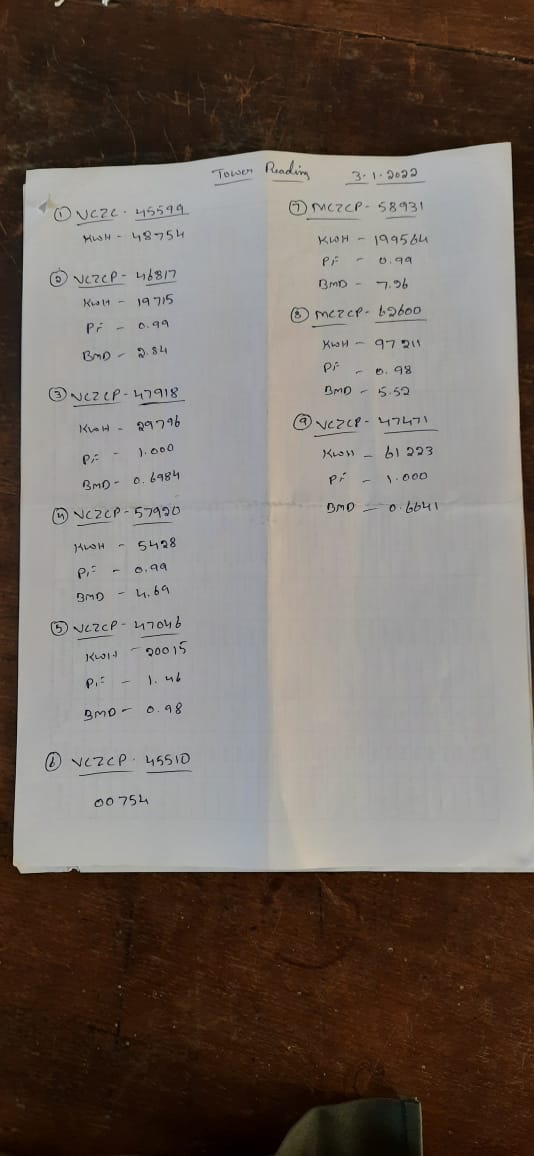 Tower Reading 3.1.2022
① VCZC. 45599
KWH - 48754
② VCZCP - 46817
KWH - 19715
PF - 0.99
BMD - 2.84
③ VCZCP - 47918
KWH - 29796
PF - 1.000
BMD - 0.6984
④ VCZCP - 57920
KWH - 5428
PF - 0.99
BMD - 4.69
⑤ VCZCP - 47046
KWH - 20015
PF - 1.46
BMD - 0.98
⑥ VCZCP. 45510
00754
⑦ MCZCP - 58931
KWH - 199564
PF - 0.99
BMD - 7.96
⑧ MCZCP - 62600
KWH - 97211
PF - 0.98
BMD - 5.52
⑨ VCZCP - 47471
KWH - 61223
PF - 1.000
BMD - 0.6641